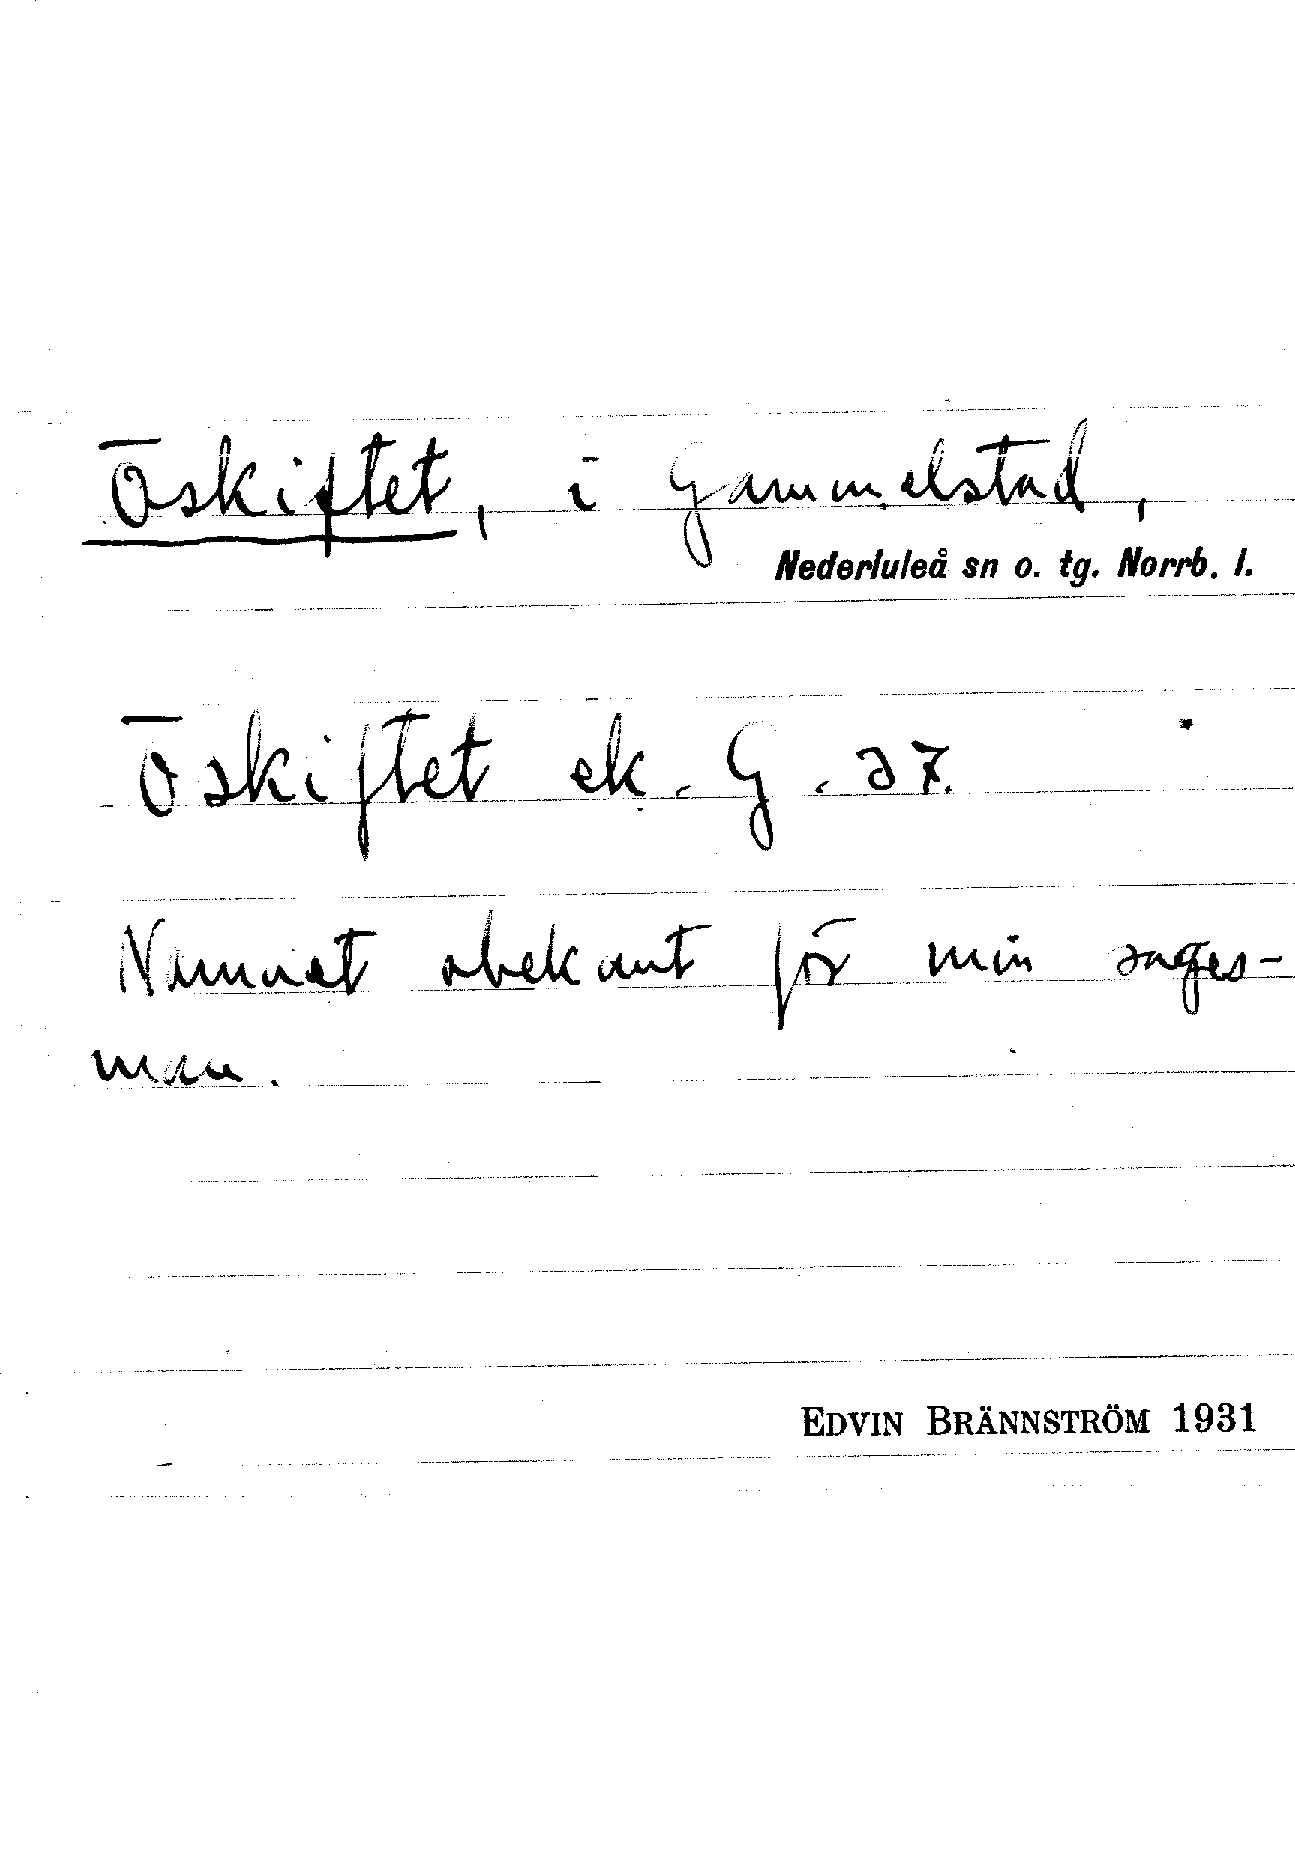 Öskiftet, i Gammelstad,
Nederluleå sn o. tg. Norrb. l.
Öskiftet ek. G. 27.
Namnet obekant för min sages-
man.
EDVIN BRÄNNSTRÖM 1931